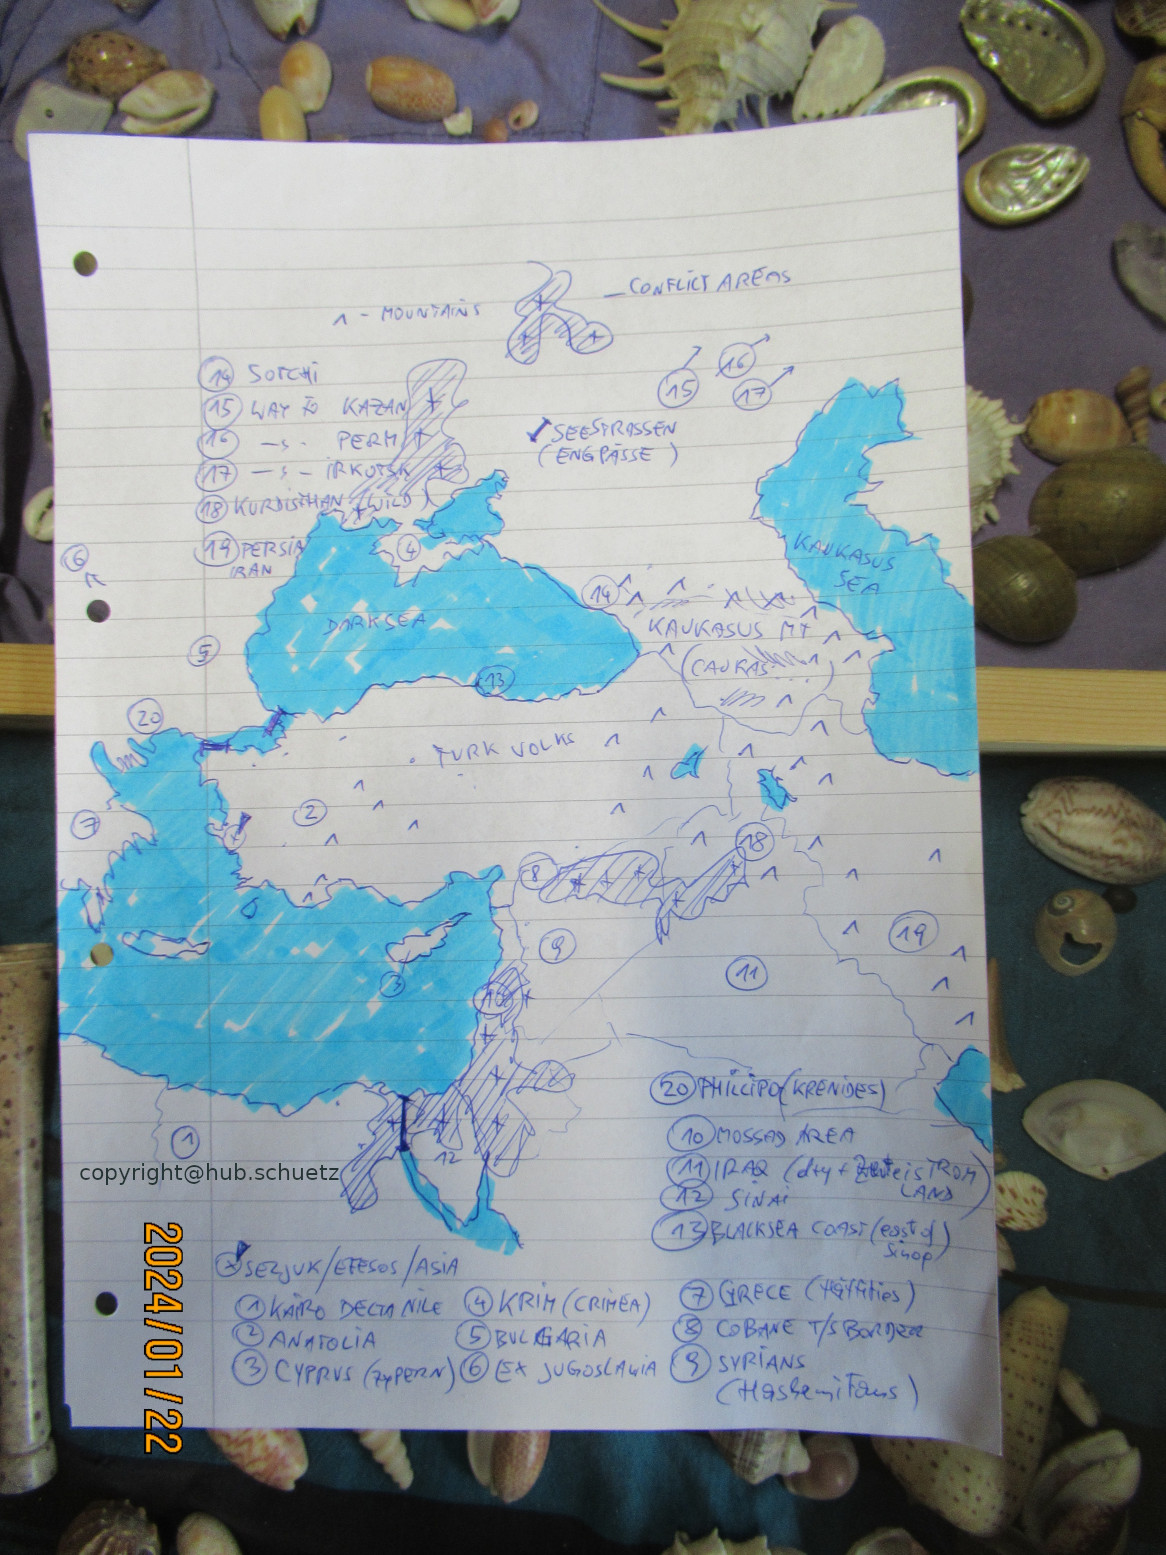 CONFLICT AREAS
^ - MOUNTAINS
14 SOTCHI
15 WAY TO KAZAN
16 -s- PERM
17 -s- IRKOTSK
18 KURDISTHAN (WILD)
19 PERSIA
IRAN
15
16
17
SEESTRASSEN
(ENGPÄSSE)
KAUKASUS
SEA
6
4
14
DARKSEA
KAUKASUS MT
5
13
20
TURK VOLKS
7
2
8
18
9
19
3
11
10
1
12
20 PHILLIPO (KRENIDES)
10 MOSSAD AREA
11 IRAQ
LAND)
12 SINAI
13 BLACKSEA COAST (east of
Sinop)
copyright@hub.schuetz
SELJUK/EFESOS/ASIA
1 KAIRO DELTA NILE
2 ANATOLIA
3 CYPRUS (ZYPERN)
4 KRIM (CRIMEA)
5 BULGARIA
6 EX JUGOSLAWIA
7 GRECE
8 COBANE T/S BORDER
9 SYRIANS
2024/01/22